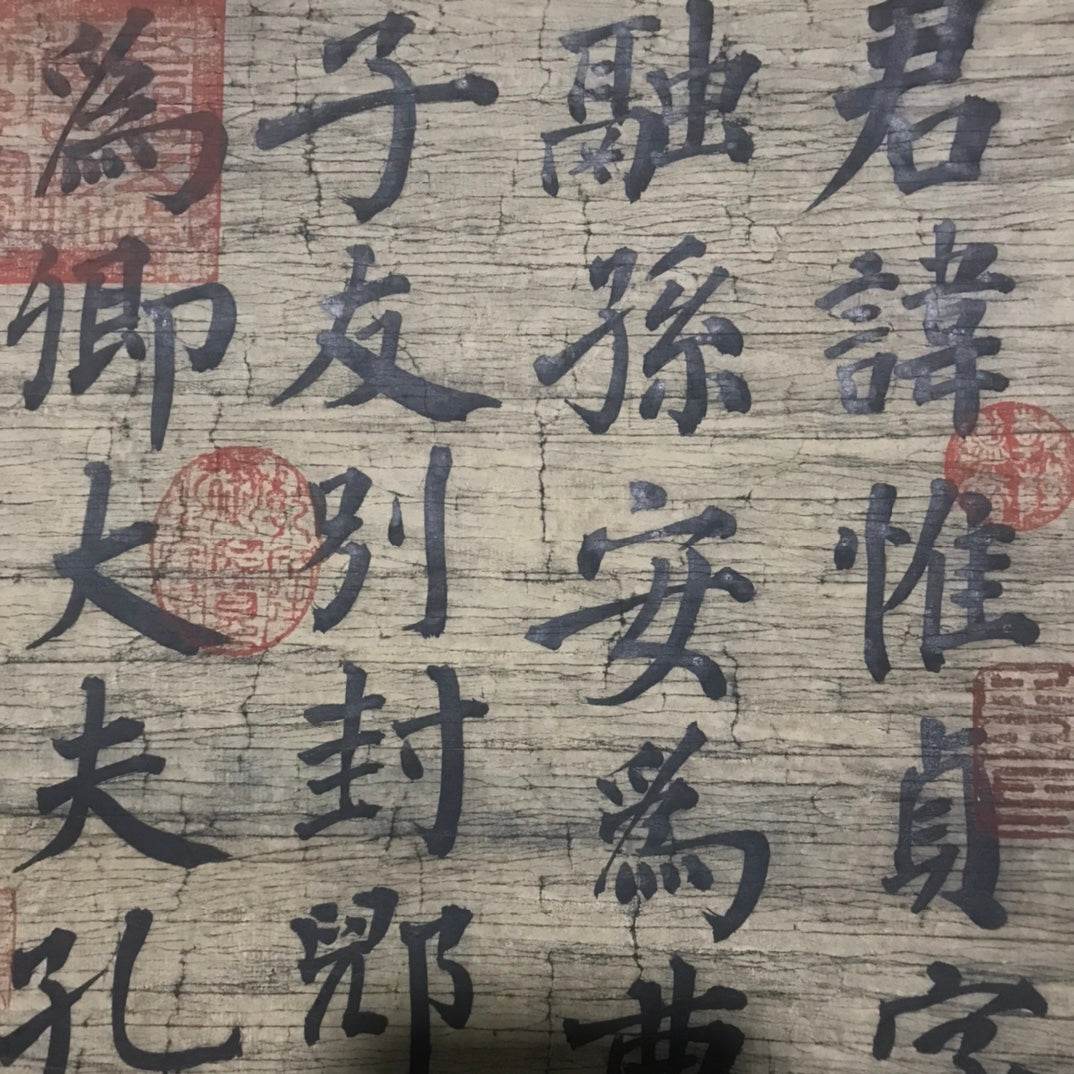 君諱惟貞字
融孫安爲曹
子友別封郳
爲卿大夫孔